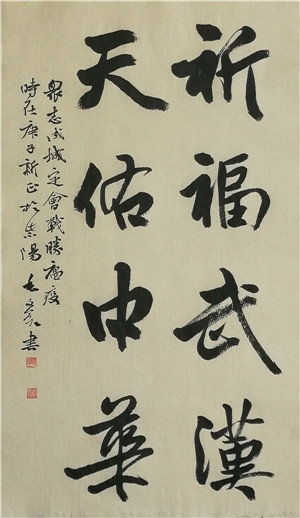 祈福武漢
天佑中華
衆志成城定會戰勝瘟疫
時在庚子新正於崇陽
書